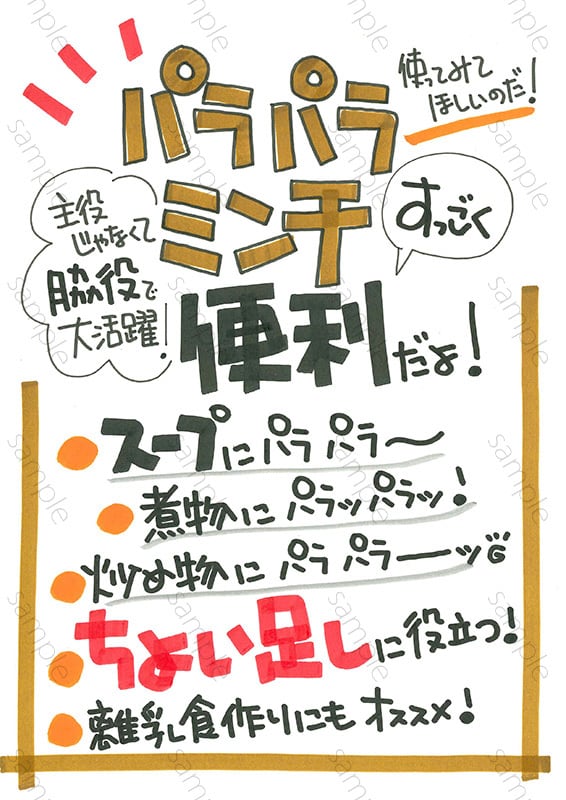 パラパラ
ミンチ
使ってみて
ほしいのだ!
すっごく
主役
じゃなくて
脇役で
大活躍!
便利だよ!
スープにパラパラ〜
煮物にパラッパラッ!
炒め物にパラパラーーッ
ちょい足しに役立つ!
離乳食作りにもオススメ!
sample